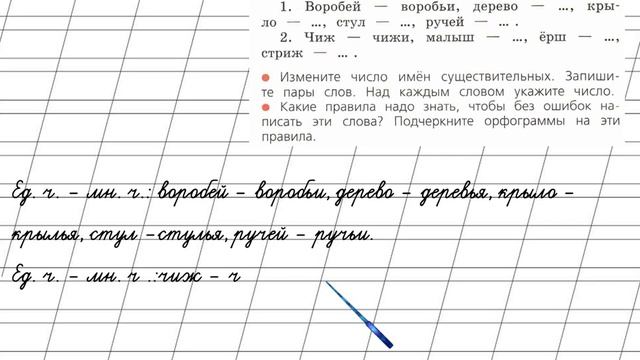 1. Воробей — воробьи, дерево — ..., кры-
ло — ..., стул — ..., ручей — ... .
2. Чиж — чижи, малыш — ..., ёрш — ...,
стриж — ... .
● Измените число имён существительных. Запиши-
те пары слов. Над каждым словом укажите число.
● Какие правила надо знать, чтобы без ошибок на-
писать эти слова? Подчеркните орфограммы на эти
правила.
Ед. ч. – мн. ч.: воробей – воробьи, дерево – деревья, крыло –
крылья, стул – стулья, ручей – ручьи.
Ед. ч. – мн. ч .:чиж – ч